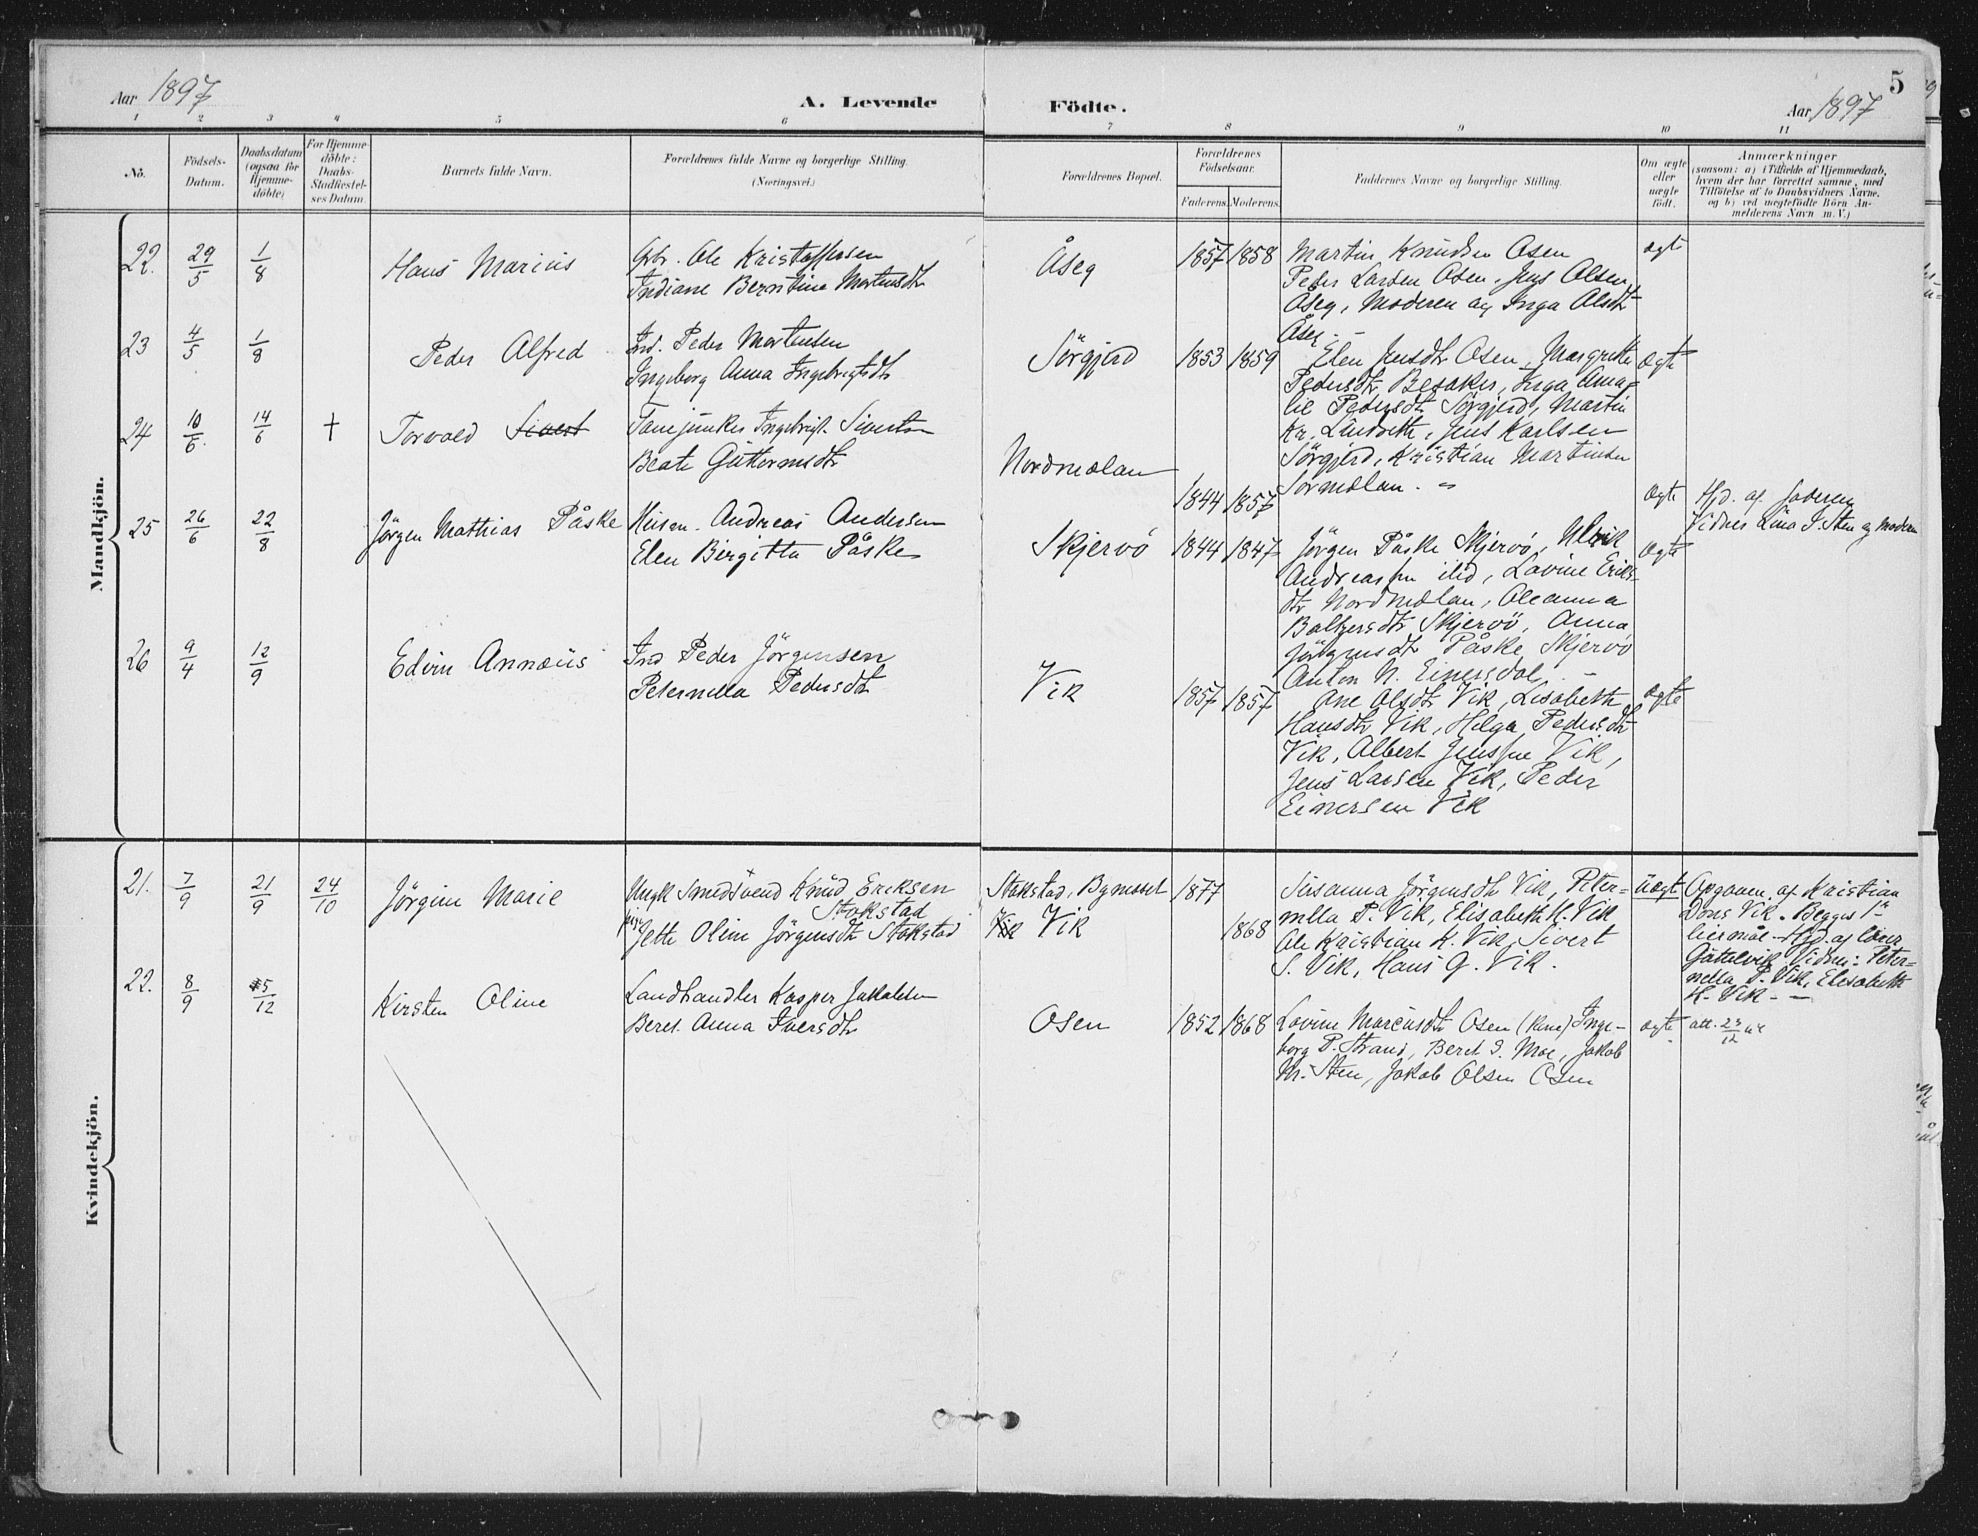 Aar 1897
A. Levende
Födte.
Aar 1897
5
1 2 3 4 5 6 7 8 9 10 11
No.
Födsels-
Datum.
Daabsdatum
(ogsaa for
Hjemme-
döbte)
For Hjemme-
döbte:
Daabs-
Stadfæstel-
ses Datum.
Barnets fulde Navn.
Forældrenes fulde Navne og borgerlige Stilling.
(Næringsvei.)
Forældrenes Bopæl.
Forældrenes
Födselsaar.
Faderens. Moderens.
Faddernes Navne og borgerlige Stilling.
Om ægte
eller
uægte
født.
Anmærkninger
(saasom: a) i Tilfælde af Hjemmedaab,
hvem der har forrettet samme, med
Tilföielse af to Daabsvidners Navne,
og b) ved uegtefødte Börn An-
melderens Navn m. V.)
Mandkjön.
22. 29/5 1/8 Hans Marius
Arb. Ole Kristoffersen
Indiane Berntine Mortensdtr
Åseg 1857 1858
Martin Knudsen Osen
Peder Larsen Osen, Jens Olsen
Åseg, Moderen og Inga Olsdtr
Åseg. —
ægte
23 4/5 1/8 Peder Alfred
Ind. Peder Mortensen
Ingeborg Anna Ingebrigtsdtr
Sörgjerd 1853 1859
Elen Jensdtr Osen, Margrethe
Pedersdtr Besaker, Inga Ama-
lie Pedersdtr Sörgjerd, Martin
Kr. Lindseth, Jens Karlsen
Sörgjerd, Kristian Martinsen
Sörmelan. —
ægte
24 10/6. 14/6 + Torvald Sivert
Ingebrigt Sivertsen
Beate Guttormsdtr
Nordmelan
1844 1857
ægte
Hjd. af Faderen
Vidner Lina J. Sten og Moderen
25 26/6 22/8 Jörgen Mathias Påske
Husm. Andreas Andersen
Elen Birgitta Påske
Skjervö 1844 1847
Jörgen Påske Skjervö, Ulrik
Andreassen ibid, Lovine Eriks-
dtr Nordmelan, Oleanna
Baltzersdtr Skjervö, Anna
Jörgensdtr Påske Skjervö
Anton N. Einersdal. —
ægte
26 9/4 12/9 Edvin Annæus
Ind Peder Jörgensen
Peternella Pedersdtr
Vik 1857 1857
Ane Olsdtr Vik, Lisabeth
Hansdtr Vik, Helga Pedersdtr
Vik, Albert Jenssen Vik,
Jens Larsen Vik, Peder
Einersen Vik
ægte
Kvindekjön.
21. 7/9 21/9 24/10 Jörgine Marie
Ungk Smedsvend Knud Eriksen
Stokstad
pige Jette Oline Jörgensdtr Stokstad
Stokstad, Bynesset 1877
Vik Vik 1868
Susanna Jörgensdtr Vik, Peter-
nella P. Vik, Elisabeth H. Vik
Ole Kristian K. Vik, Sivert
S. Vik, Hans G. Vik.
Uægte
Opgaven af Kristian
Dons Vik. Begges 1ste
leiermål - Hjd. af lærer
Vidner: Peter-
nella P. Vik, Elisabeth
H. Vik —
22. 8/9 5/12 Kirsten Oline
Landhandler Kasper Jakobsen
Beret Anna Iversdtr
Osen 1852 1868
Lovine Marcusdtr Osen Inge-
borg P. Strand, Beret S. Moe, Jakob
M. Sten, Jakob Olsen Osen
ægte
att. 23/12